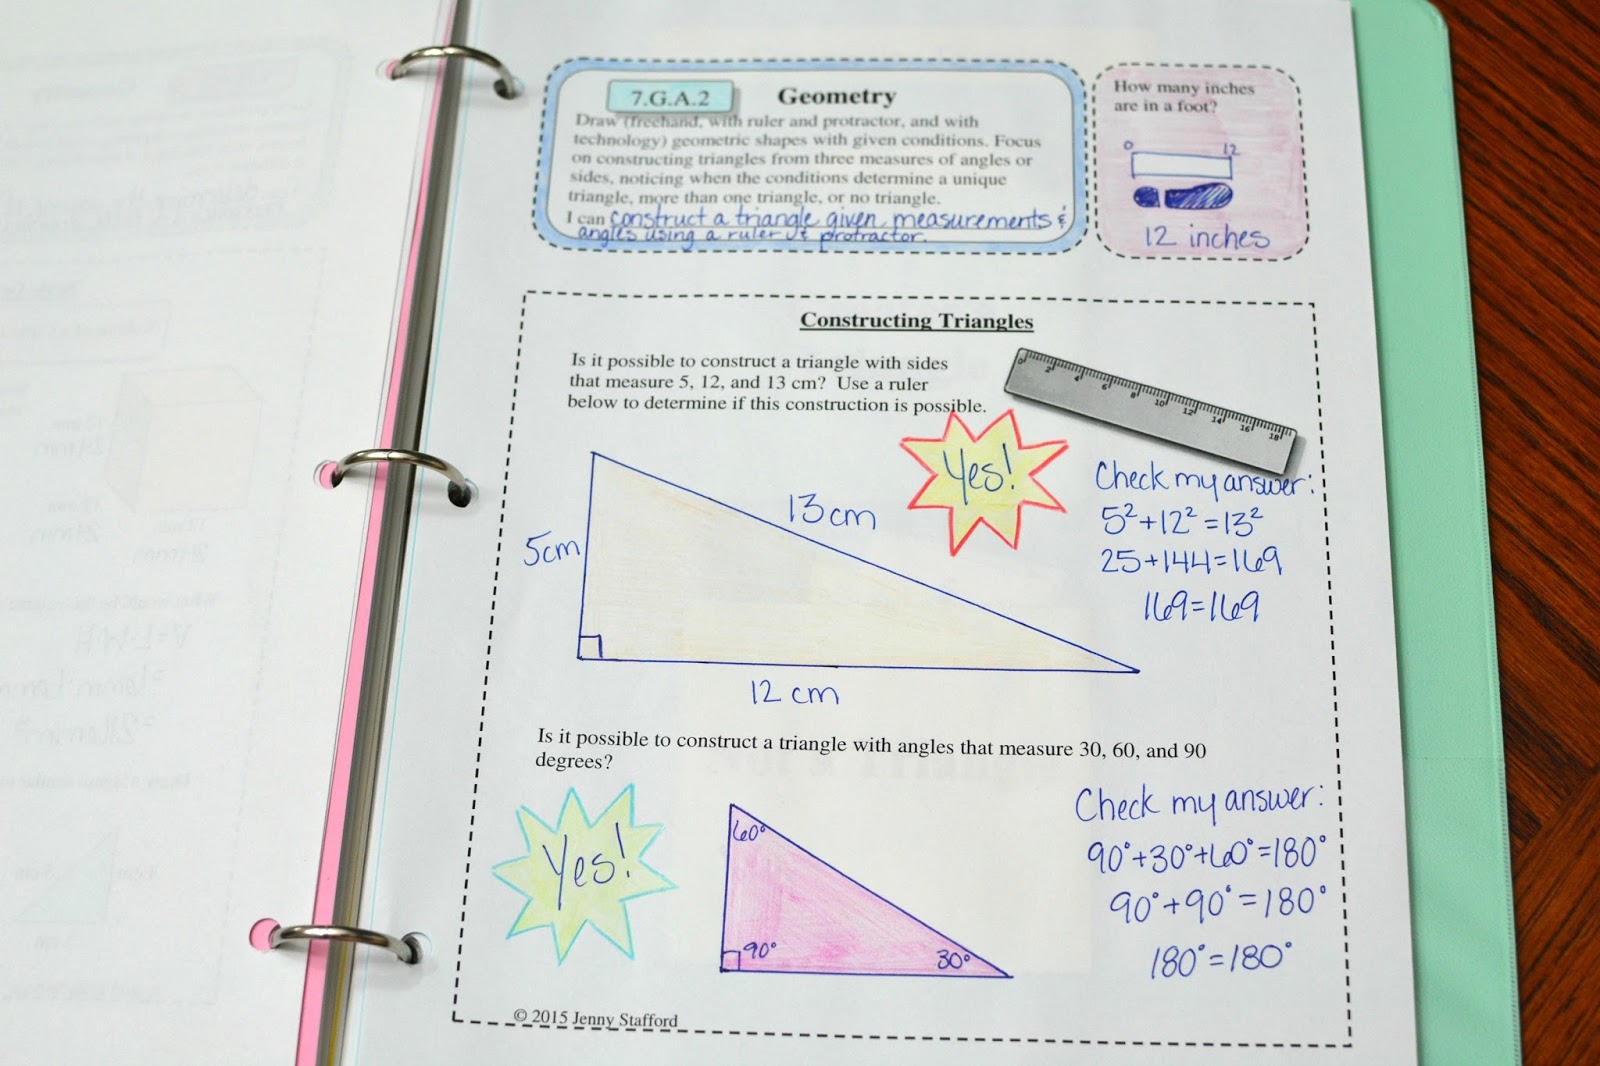 7.G.A.2 Geometry
Draw (freehand, with ruler and protractor, and with
technology) geometric shapes with given conditions. Focus
on constructing triangles from three measures of angles or
sides, noticing when the conditions determine a unique
triangle, more than one triangle, or no triangle.
I can construct a triangle given measurements &
angles using a ruler & protractor.
How many inches
are in a foot?
0 12
12 inches
Constructing Triangles
Is it possible to construct a triangle with sides
that measure 5, 12, and 13 cm? Use a ruler
below to determine if this construction is possible.
0 2 4 6 8 10 12 14 16 18
Yes!
Check my answer:
5²+12²=13²
25+144=169
169=169
13cm
5cm
12 cm
Is it possible to construct a triangle with angles that measure 30, 60, and 90
degrees?
Yes!
60°
90°
30°
Check my answer:
90°+30°+60°=180°
90°+90°=180°
180°=180°
© 2015 Jenny Stafford